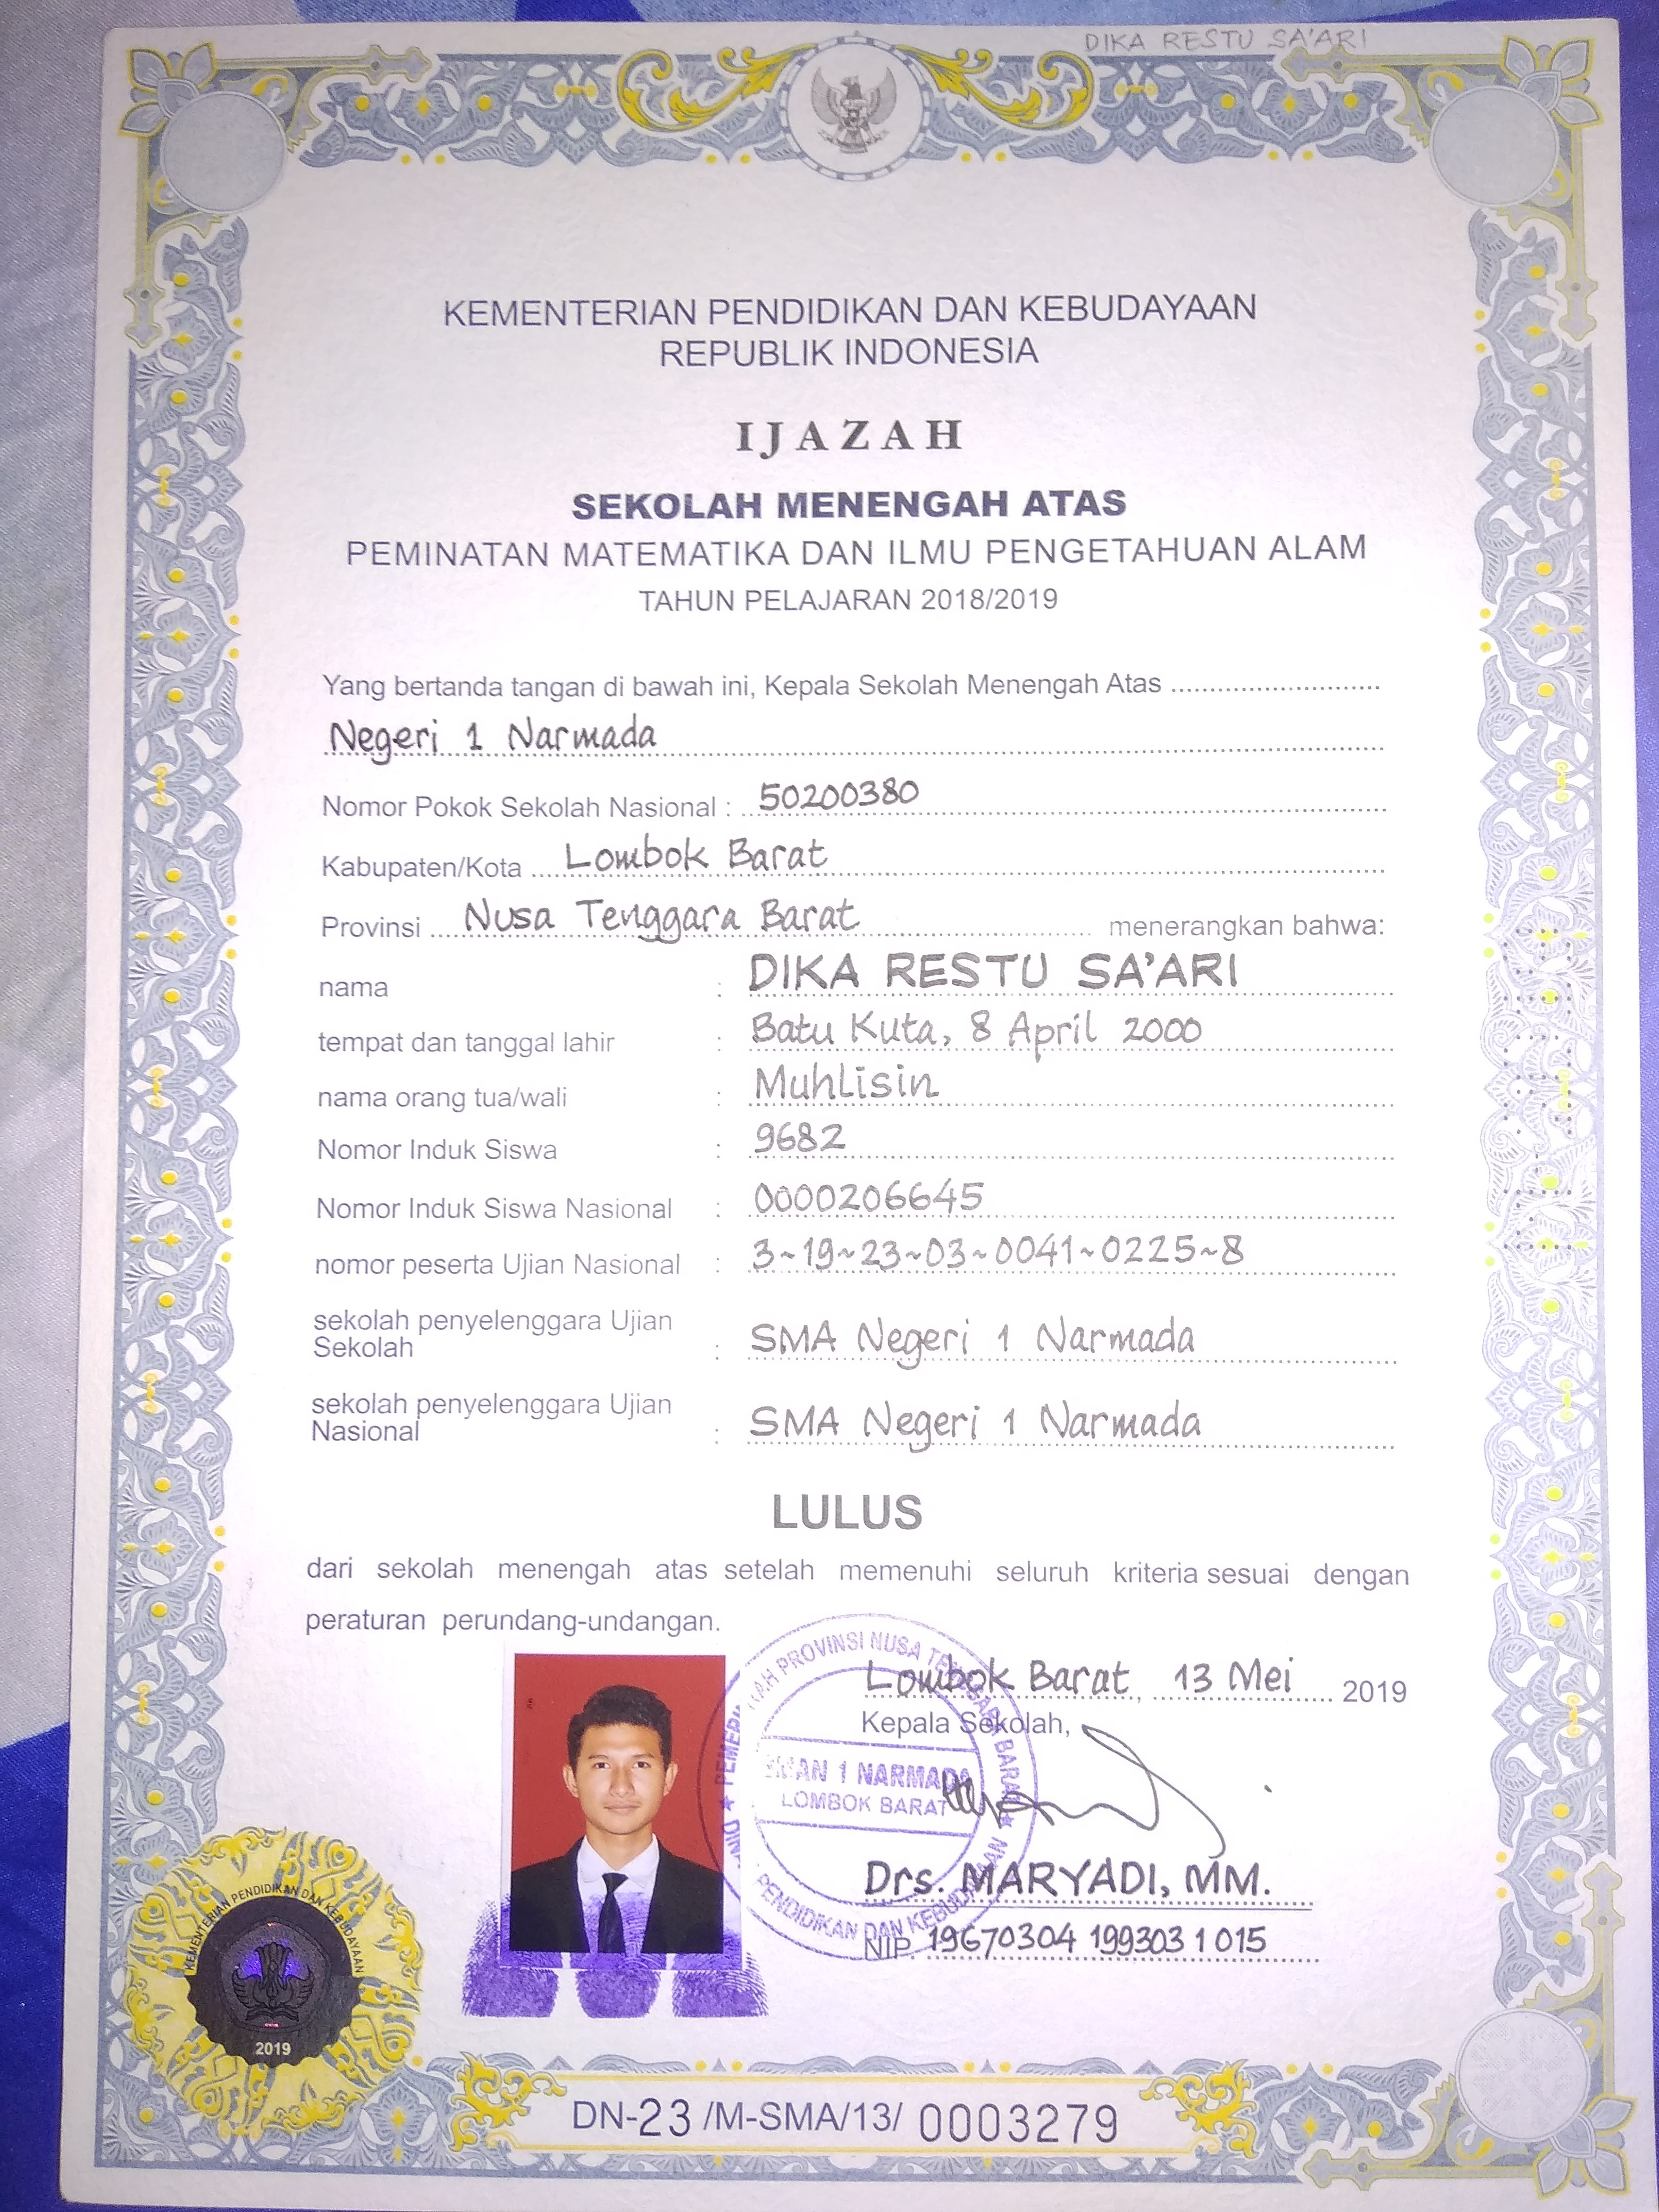 DIKA RESTU SA'ARI
KEMENTERIAN PENDIDIKAN DAN KEBUDAYAAN
REPUBLIK INDONESIA
IJAZAH
SEKOLAH MENENGAH ATAS
PEMINATAN MATEMATIKA DAN ILMU PENGETAHUAN ALAM
TAHUN PELAJARAN 2018/2019
Yang bertanda tangan di bawah ini, Kepala Sekolah Menengah Atas
Negeri 1 Narmada
Nomor Pokok Sekolah Nasional : 50200380
Kabupaten/Kota Lombok Barat
Provinsi Nusa Tenggara Barat menerangkan bahwa:
nama : DIKA RESTU SA'ARI
tempat dan tanggal lahir : Batu Kuta, 8 April 2000
nama orang tua/wali : Muhlisin
Nomor Induk Siswa : 9682
Nomor Induk Siswa Nasional : 0000206645
nomor peserta Ujian Nasional : 3~19~23~03~0041~0225~8
sekolah penyelenggara Ujian
Sekolah : SMA Negeri 1 Narmada
sekolah penyelenggara Ujian
Nasional : SMA Negeri 1 Narmada
LULUS
dari sekolah menengah atas setelah memenuhi seluruh kriteria sesuai dengan
peraturan perundang-undangan.
Lombok Barat, 13 Mei 2019
Kepala Sekolah,
PROVINSI NUSA TENGGARA BARAT
SMAN 1 NARMADA
LOMBOK BARAT
PENDIDIKAN DAN KEBUDAYAAN
Drs. MARYADI, MM.
NIP. 19670304 199303 1 015
KEMENTERIAN PENDIDIKAN DAN KEBUDAYAAN
2019
DN-23 /M-SMA/13/ 0003279